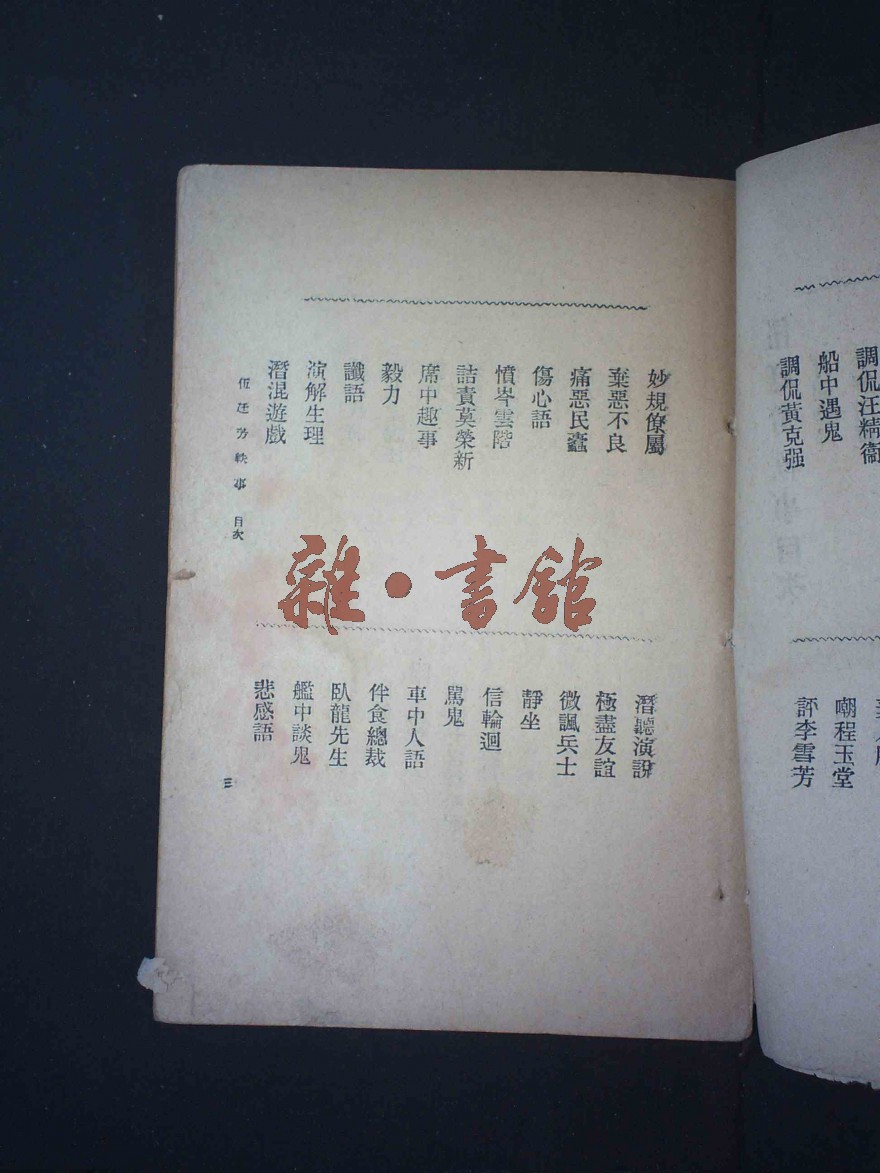 調侃汪精衞
船中遇鬼
調侃黃克强
嘲程玉堂
評李雪芳
妙規僚屬
棄惡不良
痛惡民蠹
傷心語
憤岑雲階
詰責莫榮新
席中趣事
毅力
讖語
演解生理
潛混遊戲
潛聽演說
極盡友誼
微諷兵士
靜坐
信輪迴
罵鬼
車中人語
伴食總裁
臥龍先生
艦中談鬼
悲感語
伍廷芳軼事 目次
三
雜·書館